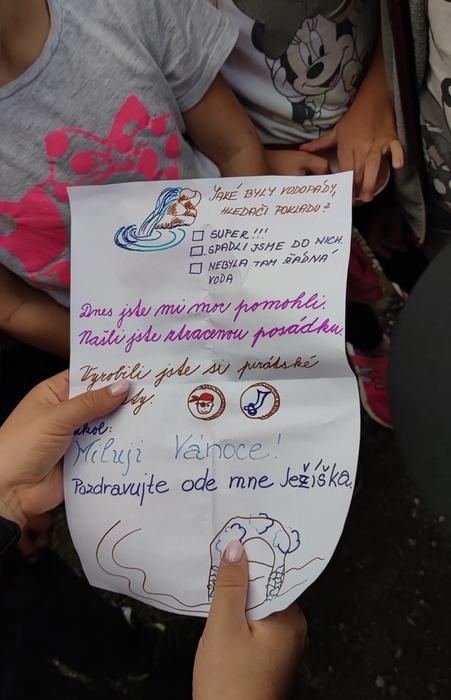 JAKÉ BYLY VODOPÁDY,
HLEDAČI POKLADU?
SUPER!!!
SPADLI JSME DO NICH.
NEBYLA TAM ŽÁDNÁ
VODA
Dnes jste mi moc pomohli.
Našli jste ztracenou posádku.
Vyrobili jste si pirátské
úkol:
Miluji Vánoce!
Pozdravujte ode mne Ježíška.